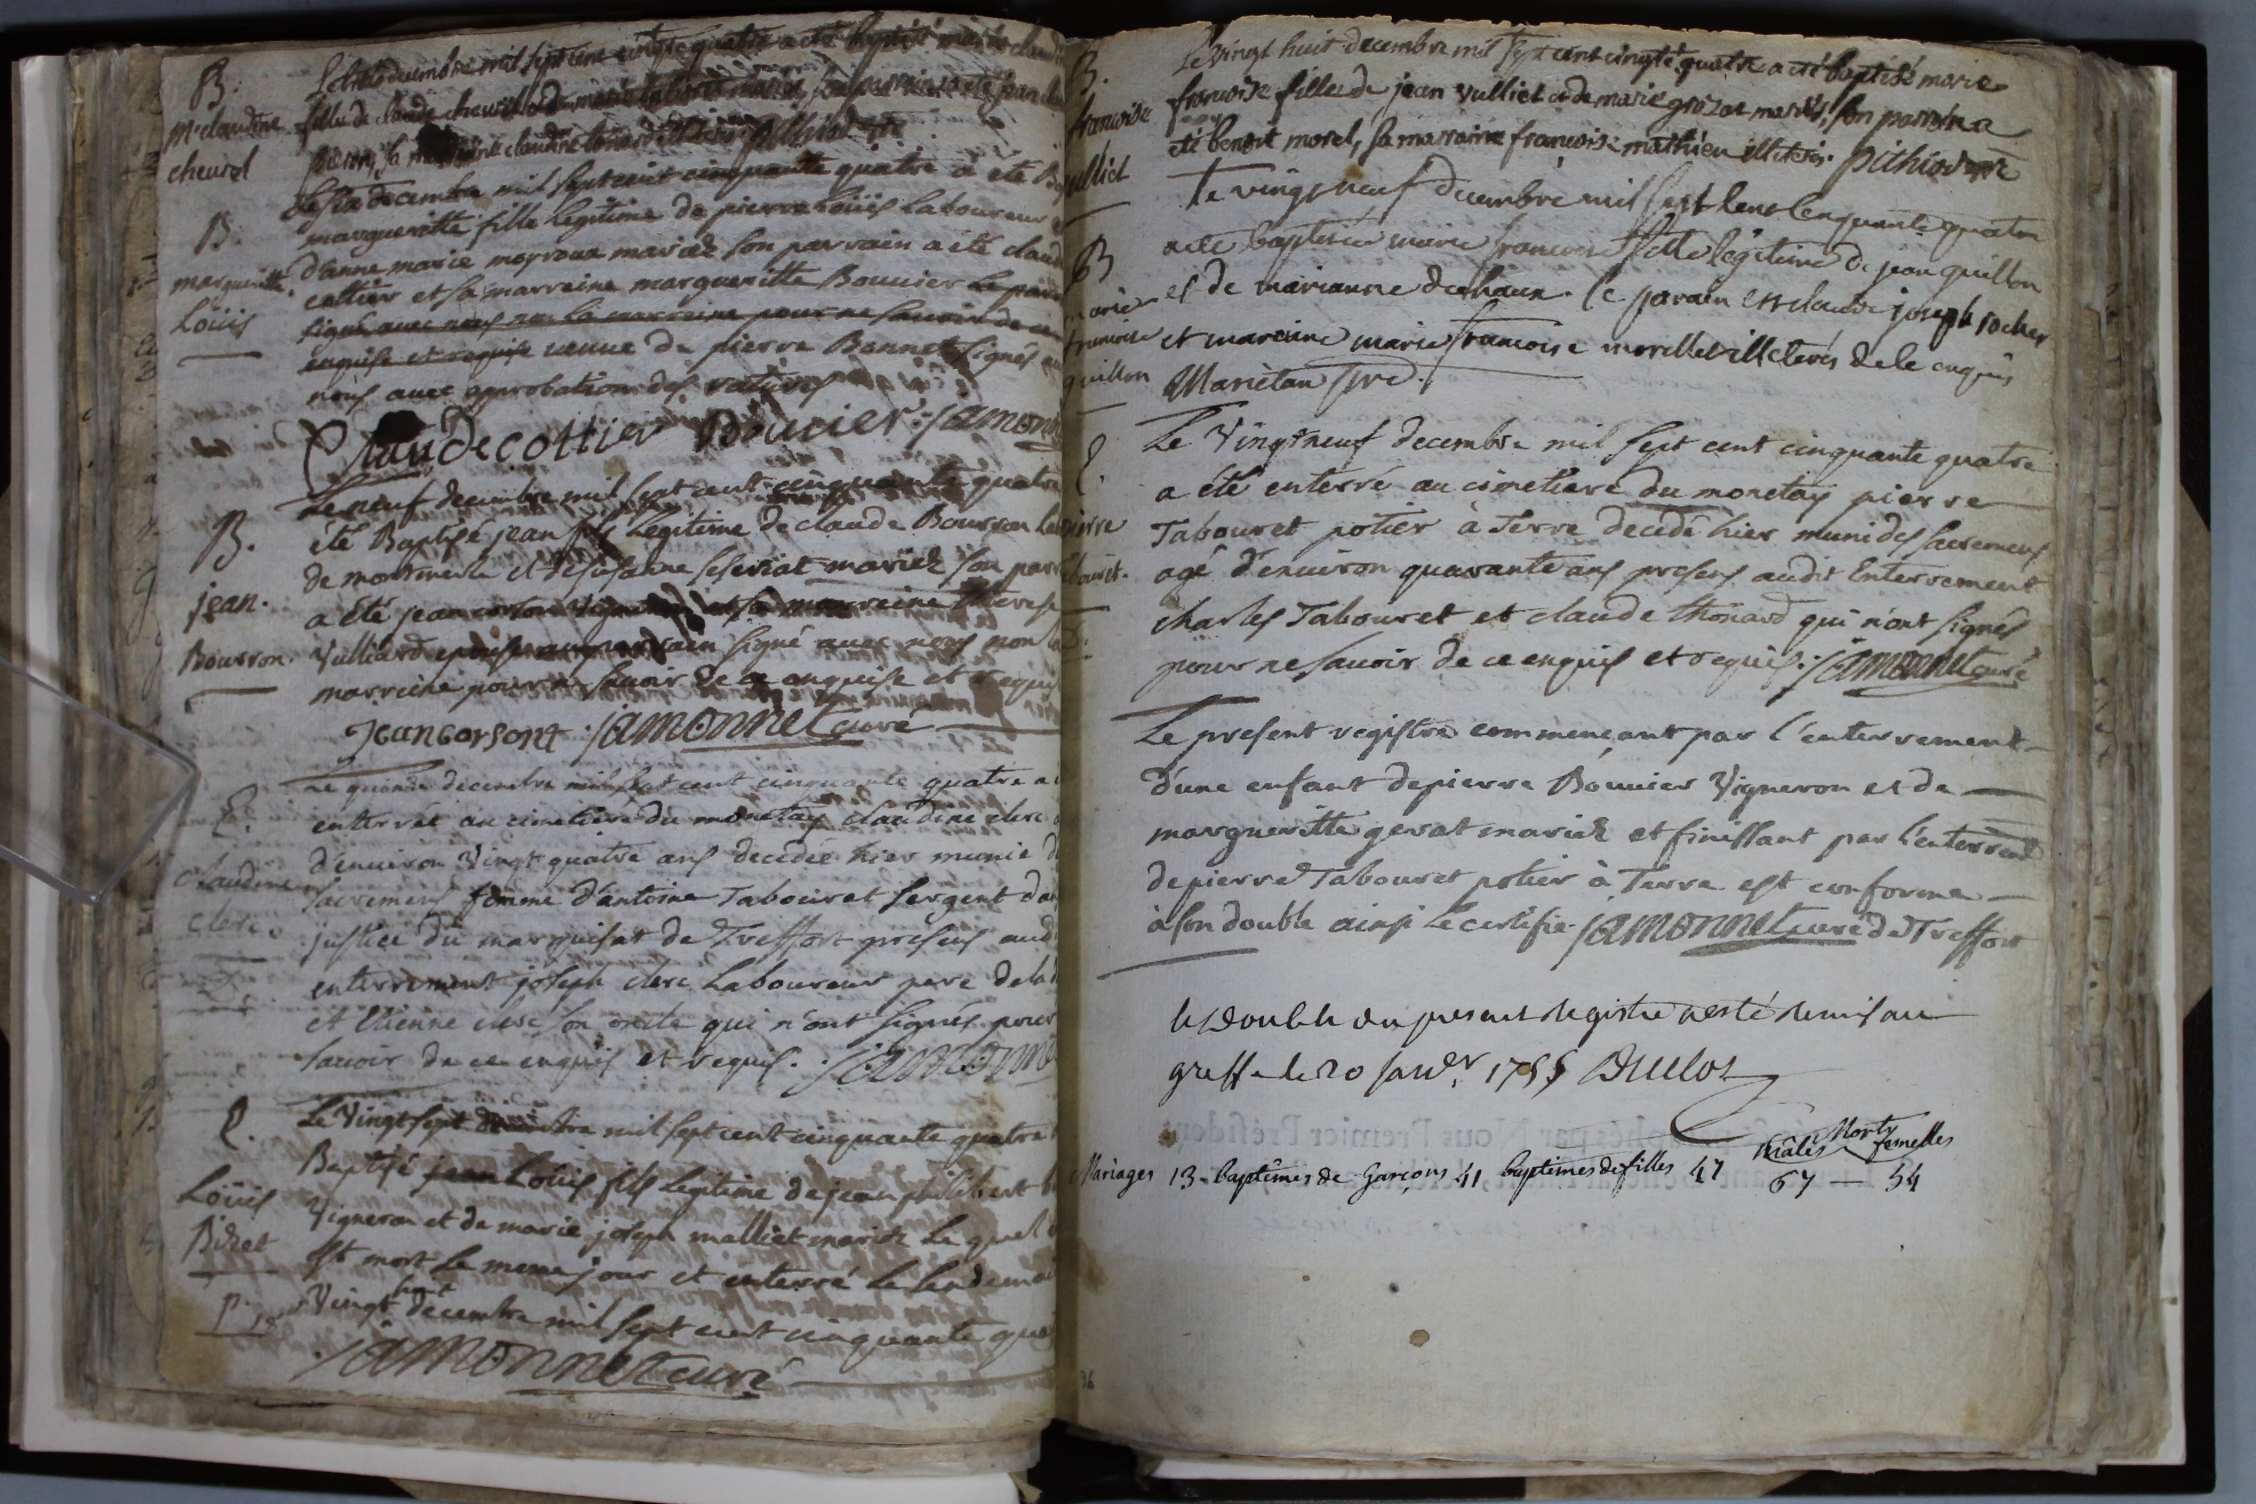 B.
Mie claudine
cheurel
decembre mil sept cent cinqte quatre a été baptisé marie
fille de claude cheurel et de marie mariés, son parrain a été jean
sa marraine claudine illiteres. pithiod
B.
margueritte
Loüis
Le six decembre mil sept cent cinquante quatre a été
margueritte fille Legitime de pierre Loüis Laboureur
d'anne marie moyroux mariez son parrain a été claude
cottier et sa marreine margueritte Bouvier Le
signé avec nous non la marreine pour ne sauoir de ce
enquise et requise veuve de pierre Bonnet signés
nous avec approbation des ratures
Claude cottier Bouvier. jamonnet
B.
jean.
Bourron.
Le neuf decembre mil sept cent cinquante quatre
été Baptisé jean fils Legitime de claude Bourron
de montmerle et de susanne mariez son
a été jean et sa marreine therese
Vulliard signé avec nous non
marreine pour ne sauoir de ce enquise et
jean corsont jamonnet curé
E.
claudine
clerc.
Le quinze decembre mil sept cent cinquante quatre a
enterrée au cimetiere du monetay claudine clerc
d'enuiron Vingt quatre ans decedée hier munie
sacremens femme d'antoine Tabouret sergent
justice du marquisat de Treffort presens
enterrement joseph clerc Laboureur pere
et Etienne clerc son oncle qui n'ont signés pour
sauoir de ce enquis et requis. jamonnet
E.
Loüis
Bidet
Le Vingt sept decembre mil sept cent cinquante quatre
Baptisé jean Loüis fils Legitime de jean philibert
Vigneron et de marie joseph malliet mariez Le quel
est mort Le meme jour et enterré Le lendemain
Vingt huit decembre mil sept cent cinquante
jamonnet curé
B.
francoise
Vulliet
Le vingt huit decembre mil sept cent cinqte quatre a eté baptisé marie
francoise fille de jean Vulliet et de marie mariés, son parrin a
eté benoit morel, sa marraine francoise mathieu illiteres. pithiod
B
marie
francoise
guillon
Le vingt neuf decembre mil sept cent cinquante quatre
a ete baptisée marie francoise fille legitime de jean guillon
et de marianne duchaux. le parain est claude joseph rocher
et maraine marie francoise morellet illeterés de ce enquis
Marietan
E.
pierre
Tabouret.
Le Vingt neuf decembre mil sept cent cinquante quatre
a été enterré au cimetiere du monetay pierre
Tabouret potier à Terre decedé hier muni des sacremens
agé d'enuiron quarante ans presens audit Enterrement
charles Tabouret et claude thonard qui n'ont signés
pour ne sauoir de ce enquis et requis. jamonnet curé
Le present registre commençant par l'enterrement
d'une enfant de pierre Bouvier Vigneron et de
margueritte gerat mariez et finissant par l'enterrent
de pierre Tabouret potier à Terre est conforme
à son double ainsi Le certifie. jamonnet curé de Treffort
le double du present Registre a esté Remis au
greffe le 20 janvr 1755
Mariages 13 - baptêmes de Garçons 41 baptêmes de filles 47
Morts
Mâles femelles
67 — 54